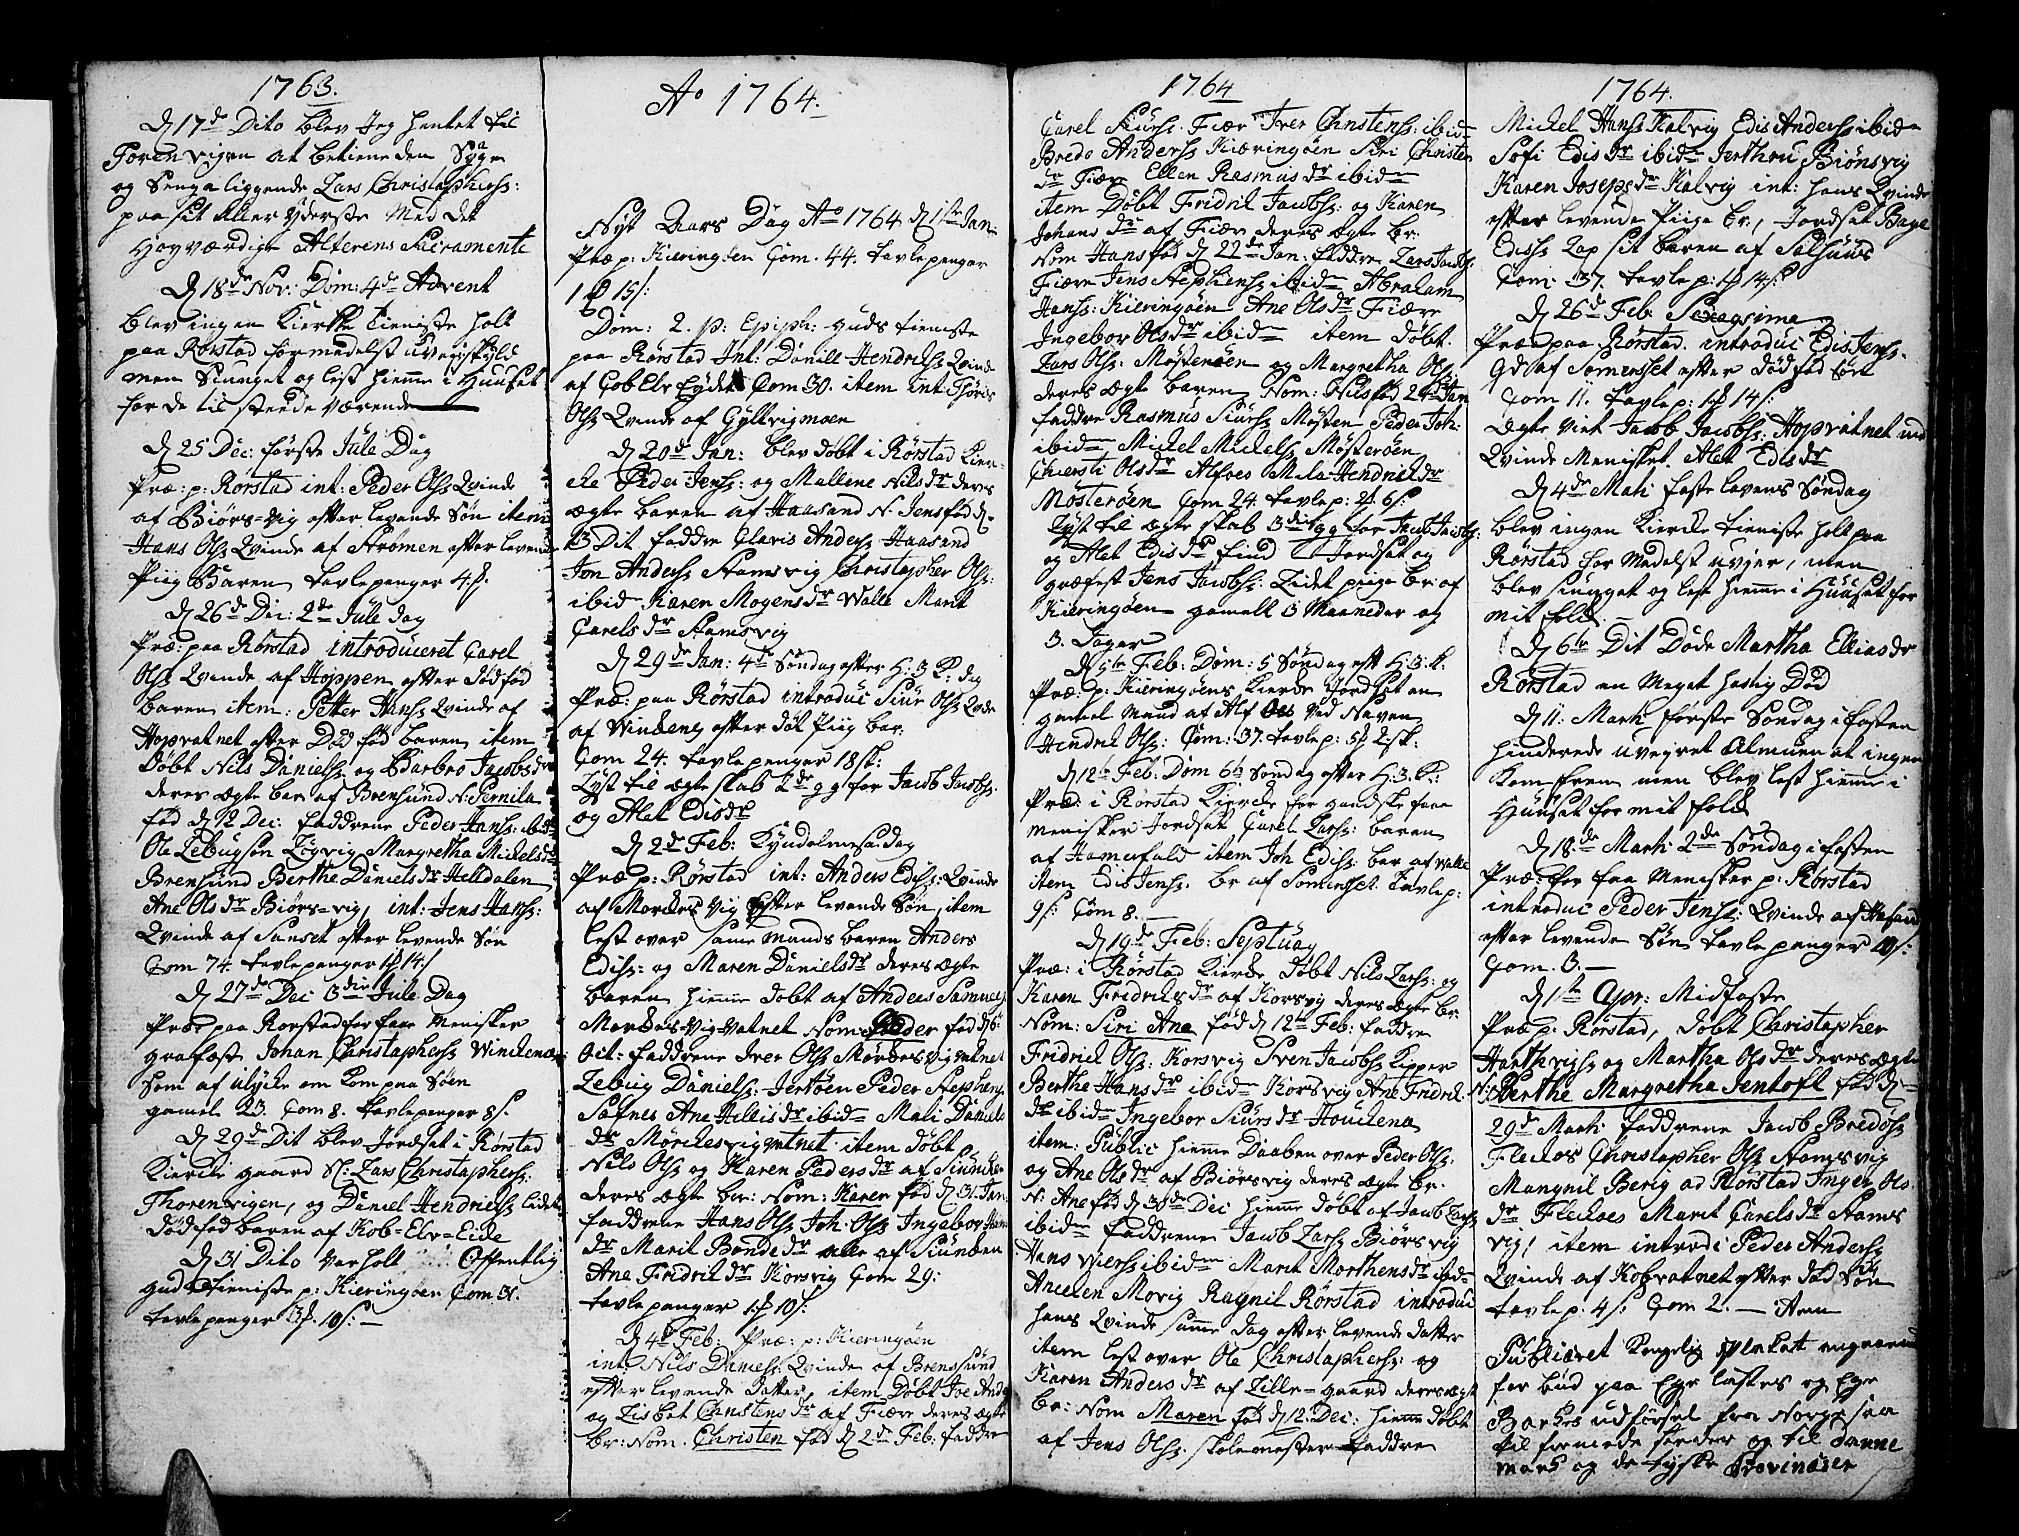 1763.
D 17de Dito blev Jeg hentet til
Torenvigen at betiene den Syge
og Senga liggende Lars Christophers:
paa sit Aller yderste Med det
Høyværdige Alterens Sacramente
D 18de Nov: Dom: 4de Advent
blev ingen Kirke tieniste holt
paa Rørstad formedelst uveirskyld
men Siunget og lest hieme i Huuset
for de til steede værende
D 25 Dec: første Jule Dag
Præ: p: Rørstad int: Peder Ols: Qvinde
af Biørs-vig efter levende Søn item
Hans Ols: Qvinde af Strømen efter levende
Piig Baren tavlepenger 4.
D 26de Dec: 2de Jule dag
Præ: paa Rørstad introduceret Carel
Ols: Qvinde af Hoppen efter dødfød
baren item: Petter Hans: Qvinde af
Hopvatnet efter Død fød baren item
Døbt Nils Daniels: og Barbro Jacobs dr
deres ægte bar: af Brensund N: Pernila
fød D 12 Dec: faddrene Peder Hans: ibid
Ole Zebugson Løgvig Margretha Mickels dr
Brensund Berthe Daniels dr Helldalen
Ane Ols dr Biørs-vig, int: Jens Hans:
Qvinde af Sanset efter levende Søn
Com 74. tavlepenger 14.
D 27de Dec 3die Jule Dag
Præ: paa Rørstad for faae Menisker
græfæste Johan Christophers Windenes
som af ulycke om kom paa Søen
gamel 23. Com 8. tavlepenger 8 s.
D 29de Dit blev Jordset i Rørstad
Kierke gaard Sl: Lars Christophers:
Thorenvigen, og Daniel Hendrichs: lidet
Dødfød baren af Kob-Elv-Eide
D 31 Dito var holt Offentlig
guds tieniste p: Kieringøen Com 31.
tavlepenger 3. 10 s: —
Ao 1764.
Nyt Aars Dag Ao 1764 D 1ste Jan
Præ p: Kieringøen Com. 44. tavlepenger
1 15 s:
Dom: 2. p: Epiph: guds tieniste
paa Rørstad Int: Daniell Hendrichs Qvinde
af Cob Elv Eyde Com 30. item int: Thøris
Ols Qvinde af Gyltvigmoen
D 20de Jan: blev døbt i Rørstad Kier-
cke Peder Jens: og Mallene Nils dr deres
ægte baren af Haasand N. Jens fød D
13 Dit faddre Claris Anders Haasand
Jon Anders Stamsvig Christopher Ols:
ibid Karen Mogens dr Walle Marit
Carels dr Stamsvig
D 29de Jan: 4de Søndag efter H: 3 K: dag
Præ: paa Rørstad introduc Siur Ols Qvde
af Windenes efter døt Piig bar:
Com 24. tavlepenger 18 sk:
Lyst til ægteskab 2de gg for Jacob Jacobs:
og Alet Edis dr
D 2de Feb: Kyndelmesse dag
Præ p: Rørstad int: Anders Edis: Qvinde
af Morkesvig efter levende Søn, item
lest over same mands baren Anders
Edis: og Maren Daniels dr deres ægte
baren hieme døbt af Anders Samuels
Morkesvig-vatnet Nom: Peder fød D 6
Oct: faddrene Iver Ols Mørkesvig vatnet
Zebug Daniels: Jertøen Peder Stephens
Søtnes Ane Hellis dr ibid Mali Daniels
dr Mørckesvig vatnet item døbt
Nils Ols og Karen Peders dr af Siunden
deres ægte br: Nom: Karen fød D 31 Jan:
faddrene Hans Ols Joh: Ols Ingebor Hans
dr Marit Bonde dr alle af Siunden
Ane Fridrik dr Korsvig Com 29:
tavlepenger 10 s:
D 4de Feb: Præ: p: Kieringøen
int: Nils Daniels: Qvinde af Brensund
efter levende datter, item Døbt Joe Anders
og Lisbet Christens dr af Fiære deres ægte
br: Nom. Christen fød D 2de Feb: faddre
1764
Carel Siurs. Fiær Iver Christens: ibid
Bredo Anders Kieringøen Siri Christen
dr Fiære Ellen Rasmus dr ibid
item Døbt Fridrik Jacobs: og Karen
Johans dr af Fiær deres ægte br:
Nom Hans fød D 22de Jan: faddre Lars Jacobs:
Fiære Jens Stephens ibid Abraham
Hans: Kieringøen Ane Ols dr Fiære
Ingebor Ols dr ibid item døbt.
Lars Ols: Møsterøen og Margretha Ols dr
deres ægte baren Nom: Nils fød 24de Jan
faddre Rasmus Siurs Møsten Peder Joh:
ibid Mickel Mickels Møsterøen
Chiersti Ols dr Alfoes Mila Hendrick dr
Møsterøen Com 24. tavlep: 6 s:
Lyst til ægteskab 3die gg for Jacob Jacobs:
og Alet Edis dr Find Jordsat og
græfest Jens Jacobs: Lidet piige br: af
Kieringøen gamell 3 Maaneder og
3. Dager
D 5te Feb: Dom: 5 Søndag eft H. 3. K.
Præ: p: Kieringøens Kierke Jordset en
gamel mand af Alfoes ved Naven
Hendrik Ols: Com: 37. tavlep: 5 2 sk:
D 12te Feb: Dom 6te Søndag efter H: 3. K:
Præ: i Rørstad Kierke for gandske faae
menisker Jordset Carel Lars: baren
af Hamerfald item Joh Edis: bar af Walle
item Edis Jens. br af Somerset. tavlep:
9 s: Com 8. —
D 19de Feb: Septuag
Præ: i Rørstad Kierke Døbt Nils Lars: og
Karen Fridriks dr af Korsvig deres ægte br:
Nom: Siri Ane fød D 12te Feb: faddre
Fridrik Ols: Korsvig Sven Jacobs Kipper
Berthe Hans dr ibid Korsvig Ane Fridrik
dr ibid Ingebor Siurs dr Houkenes
item: Public hieme Daaben over Peder Ols:
og Ane Ols dr af Biørsvig deres ægte br.
N: Ane fød D 30de Dec hieme døbt af Jacob Lars
ibid faddrene Jacob Lars Biørsvig
Hans ibid Marit Morthens dr ibid
Anelen Movig Ragnil Rørstad introduc
hans Qvinde same dag efter levende datter
item lest over Ole Christophers: og
Karen Anders dr af Lille-gaard deres ægte
br: Nom Maren fød D 12. Dec: hieme døbt
af Jens Ols. skolemester faddre
1764.
Mickel Hans Kalvig Edis Anders ibid
Sofi Edis dr ibid Jerthru Biønsvig
Karen Joseps dr Kalvig int: hans Qvinde
efter levende Piige br, Jordsat Bage
Edis Lap sit baren af Salhuus
Com: 37. tavlep: 14 s:
D 26de Feb: Sexagsima
Præ paa Rørstad. introduc Edis Jens.
Qd af Somerset efter død fød sørt
Com 11. tavlep: 14 s:
Ægte viet Jacob Jacobs: Hopvatnet med
Qvinde Menisket. Alet Edis dr
D 4de Marti faste lavens Søndag
blev ingen Kierke tieniste holt paa
Rørstad for Medelst uvejer, men
blev siunget og lest hieme i Huuset for
mit fold.
D 6te Dit Døde Martha Ellias dr
Rørstad en Meget hastig Død
D 11. Marti første Søndag i fasten
hinderede uveyret Almuen at ingen
kom frem men blev lest hieme i
Huuset for mit fold
D 18de Marti 2den Søndag i fasten
Præ: for faa Menisker p: Rørstad
introduc Peder Jens: Qvinde af Hasand
efter levende Søn tavle penger 10 s:
Com. 3. —
D 1te Apr: Midfaste
Præ p: Rørstad, døbt Christopher
Harthvigs og Martha Ols dr deres ægte
N: Berthe Margretha Jentoft fød D
29de Marti faddrene Jacob Bredøs
Fleckos Christopher Ols Stamsvig
Mangnil Berig ad Rørstad Inger Ols
dr Fleckoes Marit Carels dr Stams
vig, item introdi Peder Anders
Qvinde af Kobvatnet efter død fød Søn
tavlep. 4 s: Com 2. — item
Publiceret Kongelig Plakat angaaende
for bud paa Ege lastes og Ege
Barkes udførsel fra Norge saa
til fremede steder og til Danne
mark og de tyske Provinser